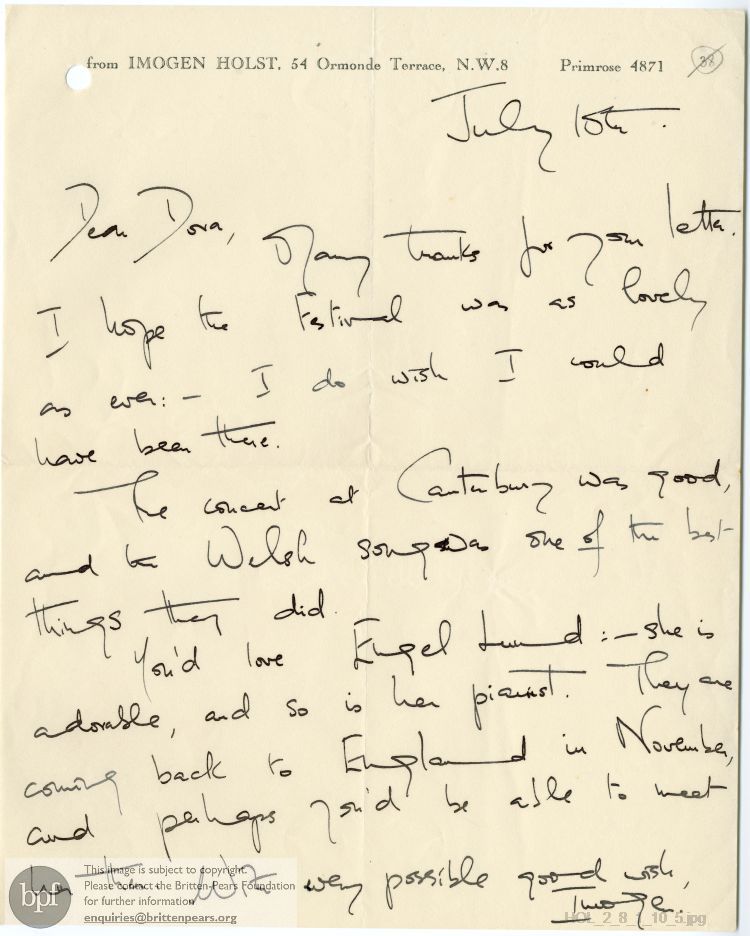 from IMOGEN HOLST, 54 Ormonde Terrace, N.W.8 Primrose 4871
38
July 15th.
Dear Dora,
Many thanks for your letter.
I hope the Festival was as lovely
as ever:- I do wish I could
have been there.
The concert at Canterbury was good,
and the Welsh song was one of the best
things they did.
You'd love Engel Lund:- she is
adorable, and so is her pianist. They are
coming back to England in November,
and perhaps you'd be able to meet
her then. With every possible good wish,
Imogen.
bpf
This image is subject to copyright.
Please contact the Britten-Pears Foundation
for further information
enquiries@brittenpears.org
HOL_2_8_1_10_5.jpg